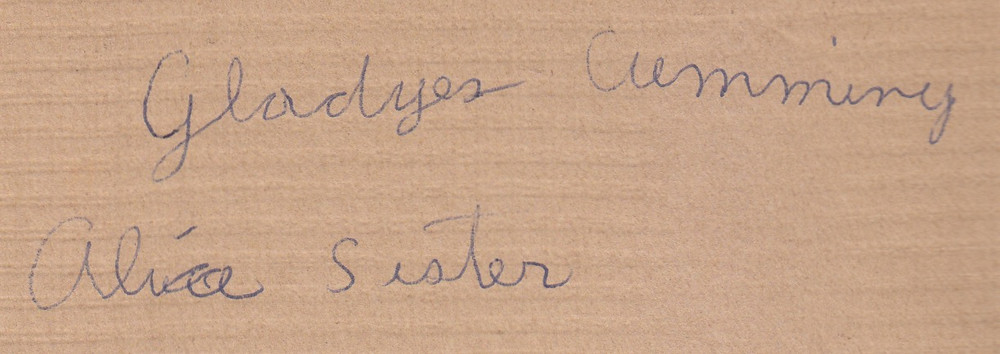 Gladyes Cumming
Alice Sister